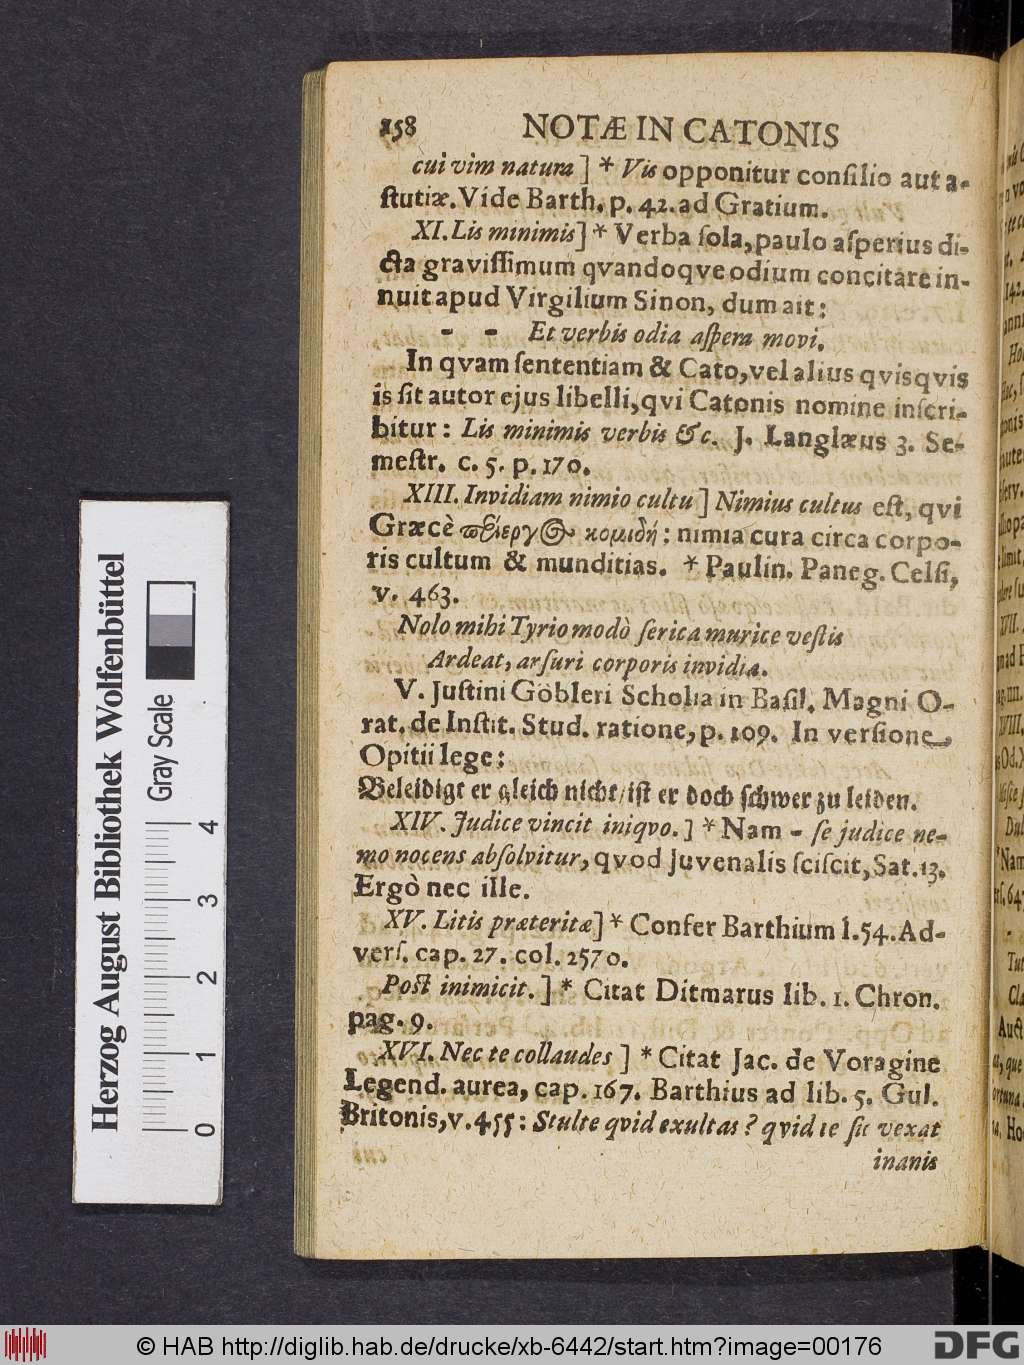 158
NOTÆ IN CATONIS
cui vim natura ] * Vis opponitur conſilio aut a-
ſtutiæ. Vide Barth. p. 42. ad Gratium.
XI. Lis minimis] * Verba ſola, paulo aſperius di-
cta graviſſimum qvandoqve odium concitare in-
nuit apud Virgilium Sinon, dum ait:
- - Et verbis odia aſpera movi.
In qvam ſententiam & Cato, vel alius qvisqvis
is ſit autor ejus libelli, qvi Catonis nomine inſcri-
bitur: Lis minimis verbis &c. J. Langlæus 3. Se-
meſtr. c. 5. p. 170.
XIII. Invidiam nimio cultu ] Nimius cultus eſt, qvi
Græcè κομιδή: nimia cura circa corpo-
ris cultum & munditias. * Paulin. Paneg. Celſi,
v. 463.
Nolo mihi Tyrio modò ſerica murice veſtis
Ardeat, arſuri corporis invidia.
V. Juſtini Göbleri Scholia in Baſil. Magni O-
rat. de Inſtit. Stud. ratione, p. 109. In verſione
Opitii lege:
Beleidigt er gleich nicht/ iſt er doch ſchwer zu leiden.
XIV. Judice vincit iniqvo. ] * Nam - ſe judice ne-
mo nocens abſolvitur, qvod Juvenalis ſciſcit, Sat. 13.
Ergò nec ille.
XV. Litis præteritæ] * Confer Barthium l. 54. Ad-
verſ. cap. 27. col. 2570.
Poſt inimicit. ] * Citat Ditmarus lib. 1. Chron.
pag. 9.
XVI. Nec te collaudes ] * Citat Jac. de Voragine
Legend. aurea, cap. 167. Barthius ad lib. 5. Gul.
Britonis, v. 455: Stulte qvid exultas? qvid te ſic vexat
inanis
Herzog August Bibliothek Wolfenbüttel
Gray Scale
0 1 2 3 4
© HAB http://diglib.hab.de/drucke/xb-6442/start.htm?image=00176
DFG